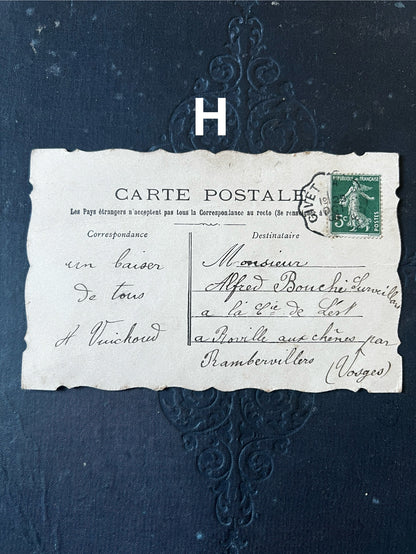 H
CARTE POSTALE
Les Pays étrangers n'acceptent pas tous la Correspondance au recto (Se rens
Correspondance
Destinataire
un baiser
de tous
A Vuichoud
Monsieur
Alfred Bouché Surveillant
a la Cie de l'Est
a Roville aux chênes par
Rambervillers
(Vosges)
GIVET
REPUBLIQUE FRANÇAISE
5c
POSTES